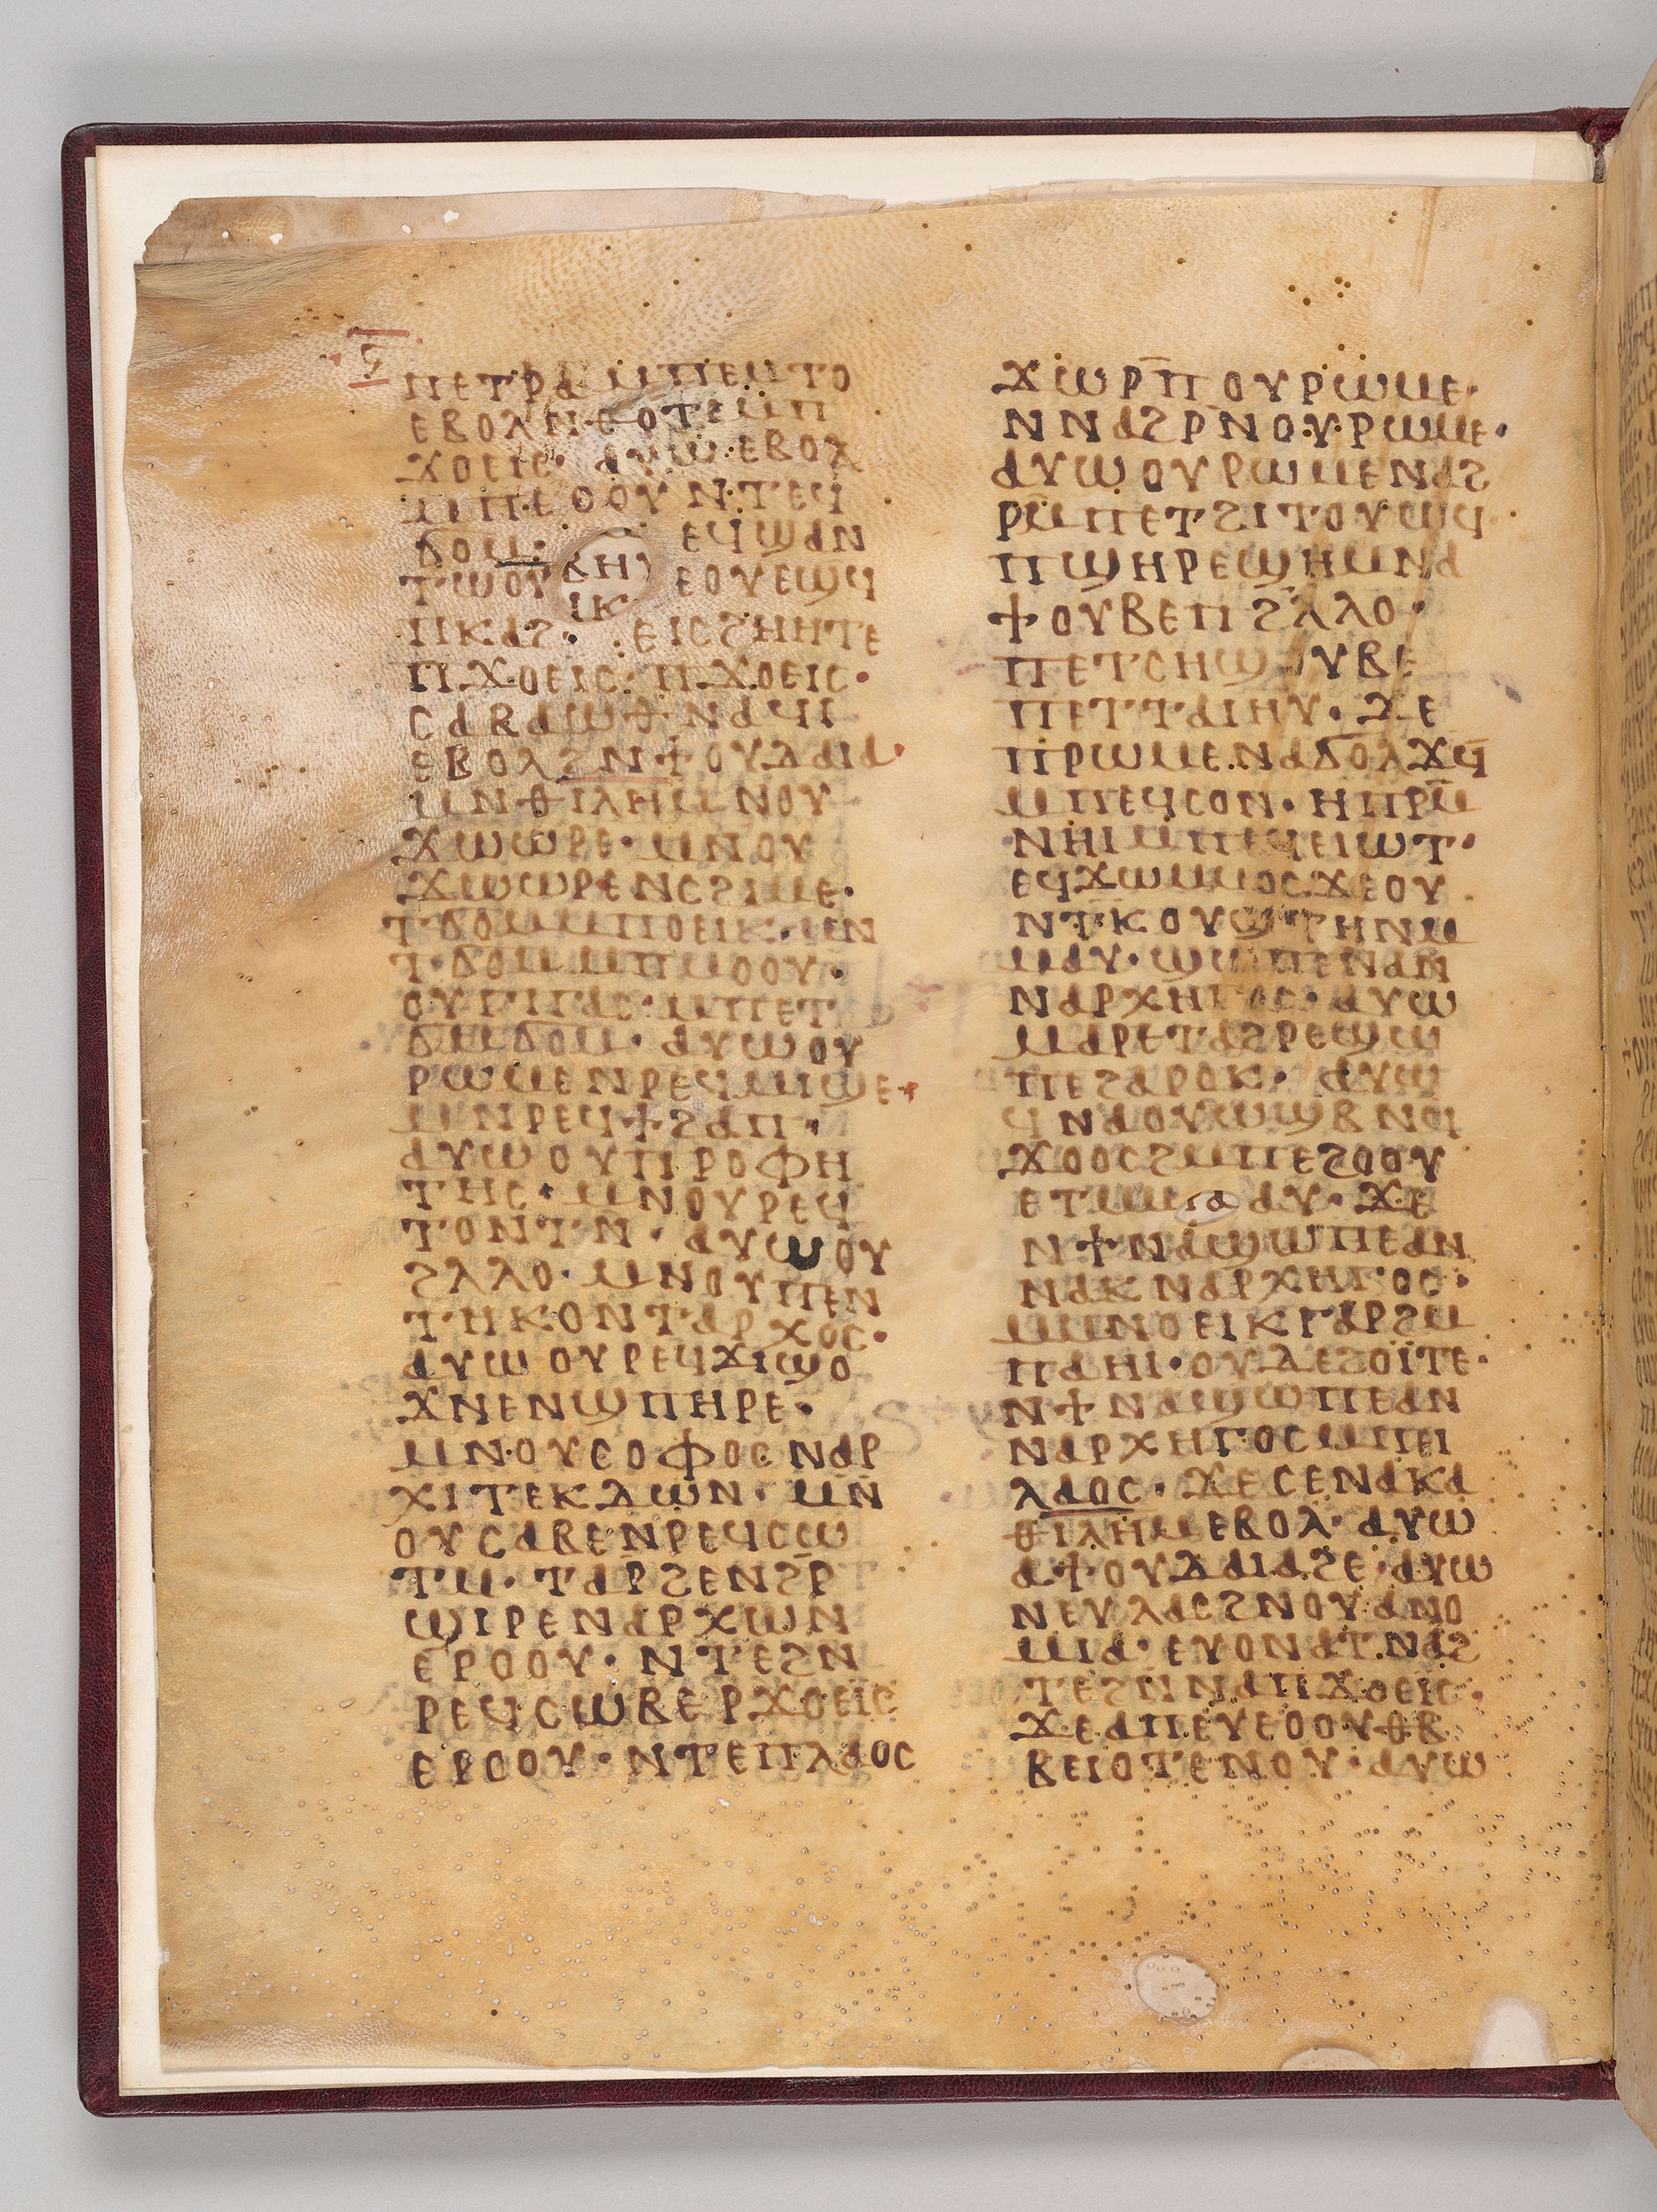 ⲋ
ⲡⲉⲧⲣⲁ ⲙⲡⲉⲙⲧⲟ
ⲉⲃⲟⲗ ⲛ·ⲑⲟⲧⲉ ⲙⲡ
ϫⲟⲉⲓⲥ· ⲁⲩⲱ ⲉⲃⲟⲗ
ⲙⲡⲉⲟⲟⲩ ⲛ·ⲧⲉϥ
ϭⲟⲙ· ⲉϥϣⲁⲛ
ⲧⲱⲟⲩ ⲉⲟⲩⲉϣϥ
ⲡⲕⲁϩ· ⲉⲓⲥϩⲏⲏⲧⲉ
ⲡϫⲟⲉⲓⲥ· ⲡϫⲟⲉⲓⲥ·
ⲥⲁⲃⲁⲱⲑ ⲛⲁϥⲓ
ⲉⲃⲟⲗ ϩⲛϯⲟⲩⲇⲁⲓⲁ·
ⲙⲛⲑⲓⲗⲏⲙ ⲛⲟⲩ
ϫⲱⲱⲣⲉ· ⲙⲛⲟⲩ
ϫⲱⲱⲣⲉ ⲛⲥϩⲓⲙⲉ·
ⲧ·ϭⲟⲙⲙⲡⲟⲉⲓⲕ· ⲙⲛ
ⲧ·ϭⲟⲙ ⲙⲡⲙⲟⲟⲩ·
ⲟⲩⲅⲓⲅⲁⲥ· ⲙⲡⲉⲧ
ϭⲙϭⲟⲙ· ⲁⲩⲱ ⲟⲩ
ⲣⲱⲙⲉ ⲛⲣⲉϥⲙⲓϣⲉ·
ⲙⲛⲣⲉϥϯϩⲁⲡ·
ⲁⲩⲱ ⲟⲩⲡⲣⲟⲫⲏ
ⲧⲏⲥ· ⲙⲛⲟⲩⲣⲉϥ
ⲧⲟⲛⲧⲛ· ⲁⲩⲱ ⲟⲩ
ϩⲗⲗⲟ· ⲙⲛⲟⲩⲡⲉⲛ
ⲧⲏⲕⲟⲛⲧⲁⲣⲭⲟⲥ·
ⲁⲩⲱ ⲟⲩⲣⲉϥϫⲓϣⲟ
ϫⲛⲉ ⲛϣⲡⲏⲣⲉ·
ⲙⲛ·ⲟⲩⲥⲟⲫⲟⲥ ⲛⲁⲣ
ⲭⲓⲧⲉⲕⲇⲱⲛ· ⲙⲛ
ⲟⲩⲥⲁⲃⲉ ⲛⲣⲉϥⲥⲱ
ⲧⲙ· ⲧⲁⲣϩⲉⲛϩⲣ̄
ϣⲓⲣⲉ ⲛⲁⲣⲭⲱⲛ
ⲉⲣⲟⲟⲩ· ⲛⲧⲉϩⲛ
ⲣⲉϥⲥⲱⲃⲉ ⲣϫⲟⲉⲓⲥ
ⲉⲣⲟⲟⲩ· ⲛⲧⲉⲡⲗⲁⲟⲥ
ϫⲱⲣⲡ̄ ⲟⲩⲣⲱⲙⲉ·
ⲛⲛⲁϩⲣⲛⲟⲩⲣⲱⲙⲉ·
ⲁⲩⲱ ⲟⲩⲣⲱⲙⲉ ⲛⲁϩ
ⲣⲙ̄ⲡⲉⲧϩⲓⲧⲟⲩⲱϥ
ⲡϣⲏⲣⲉϣⲏⲙ ⲛⲁ
ϯⲟⲩⲃⲉⲡϩⲗⲗⲟ·
ⲡⲉⲧⲥⲏϣ ⲟⲩⲃⲉ
ⲡⲉⲧⲧⲁⲓⲏⲩ· ϫⲉ
ⲡⲣⲱⲙⲉ ⲛⲁϭⲟⲗϫϥ̄
ⲙⲡⲉϥⲥⲟⲛ· ⲏ ⲡⲣⲙ̄
ⲛⲏⲓ ⲙⲡⲉϥⲉⲓⲱⲧ·
ⲉϥϫⲱⲙⲙⲟⲥ ϫⲉ ⲟⲩ
ⲛⲧⲕⲟⲩϣⲧⲏⲛ ⲙ
ⲙⲁⲩ· ϣⲱⲡⲉ ⲛⲁⲛ
ⲛⲁⲣⲭⲏⲅⲟⲥ· ⲁⲩⲱ
ⲙⲁⲣⲉⲧⲁϩⲣⲉ ϣⲱ
ⲡⲉ ϩⲁⲣⲟⲕ· ⲁⲩⲱ
ϥⲛⲁⲟⲩⲱϣⲃ ⲛϥ
ϫⲟⲟⲥ ϩⲙⲡⲉϩⲟⲟⲩ
ⲉⲧⲙⲙⲁⲩ· ϫⲉ
ⲛϯⲛⲁϣⲱⲡⲉ ⲁⲛ
ⲛⲁⲕ ⲛⲁⲣⲭⲏⲅⲟⲥ·
ⲙⲙⲛⲟⲉⲓⲕ ⲅⲁⲣ ϩⲙ
ⲡⲁⲏⲓ· ⲟⲩⲇⲉ ϩⲟⲓ̈ⲧⲉ·
ⲛϯⲛⲁϣⲱⲡⲉ ⲁⲛ
ⲛⲁⲣⲭⲏⲅⲟⲥ ⲙⲡⲉⲓ
ⲗⲁⲟⲥ· ϫⲉ ⲥⲉⲛⲁⲕⲁ
ⲑⲓⲗⲏⲙ ⲉⲃⲟⲗ· ⲁⲩⲱ
ⲁϯⲟⲩⲇⲁⲓⲁ ϩⲉ· ⲁⲩⲱ
ⲛⲉⲩⲗⲁⲥ ϩⲛⲟⲩⲁⲛⲟ
ⲙⲓⲁ· ⲉⲩⲟⲛⲁⲧⲛⲁϩ
ⲧⲉ ϩⲛ ⲛⲁⲡϫⲟⲉⲓⲥ·
ϫⲉ ⲁⲡⲉⲩⲉⲟⲟⲩ ⲑⲃ
ⲃⲉⲓⲟ ⲧⲉⲛⲟⲩ· ⲁⲩⲱ